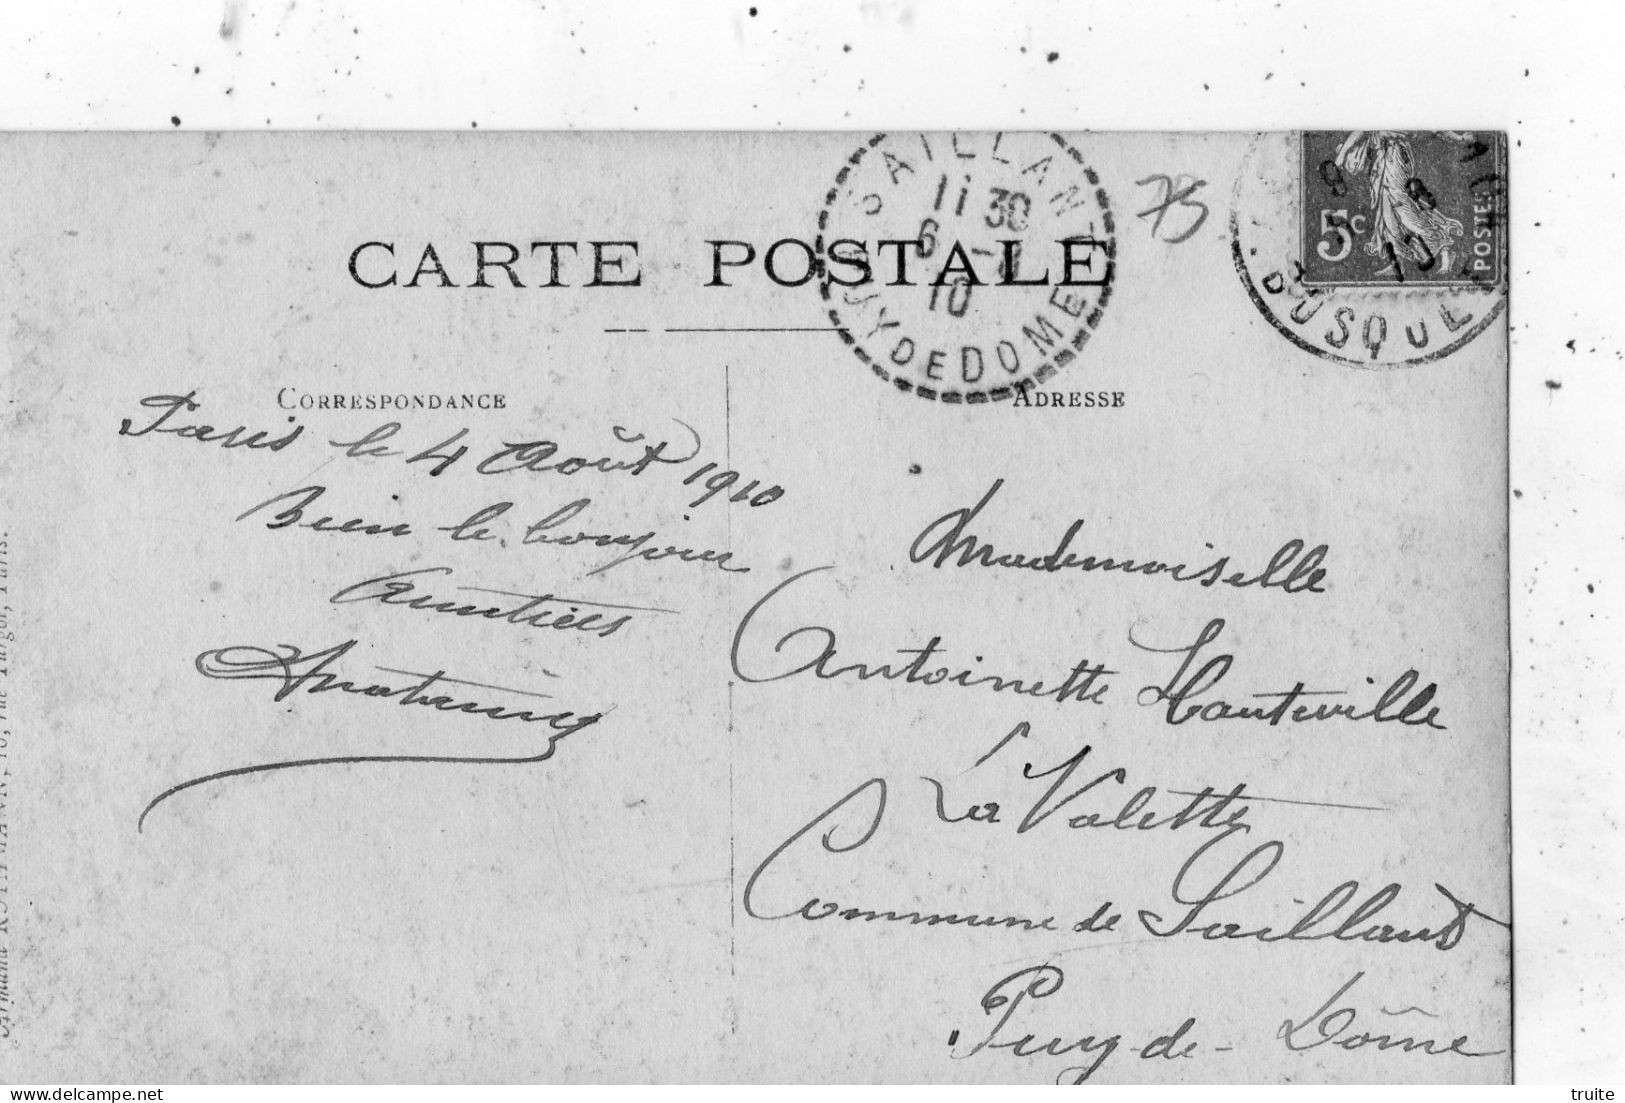 SAILLANT
11 30
6 -8
10
PUY DE DOME
75
8
10
BUSQUE
5c
POSTES
CARTE POSTALE
CORRESPONDANCE
ADRESSE
Paris le 4 Août 1910
Bien le bonjour
Amitiés
Mademoiselle
Antoinette Hauteville
La Valette
Commune de Saillant
Puy-de-Dôme
Rue Turgot, Paris.
truite